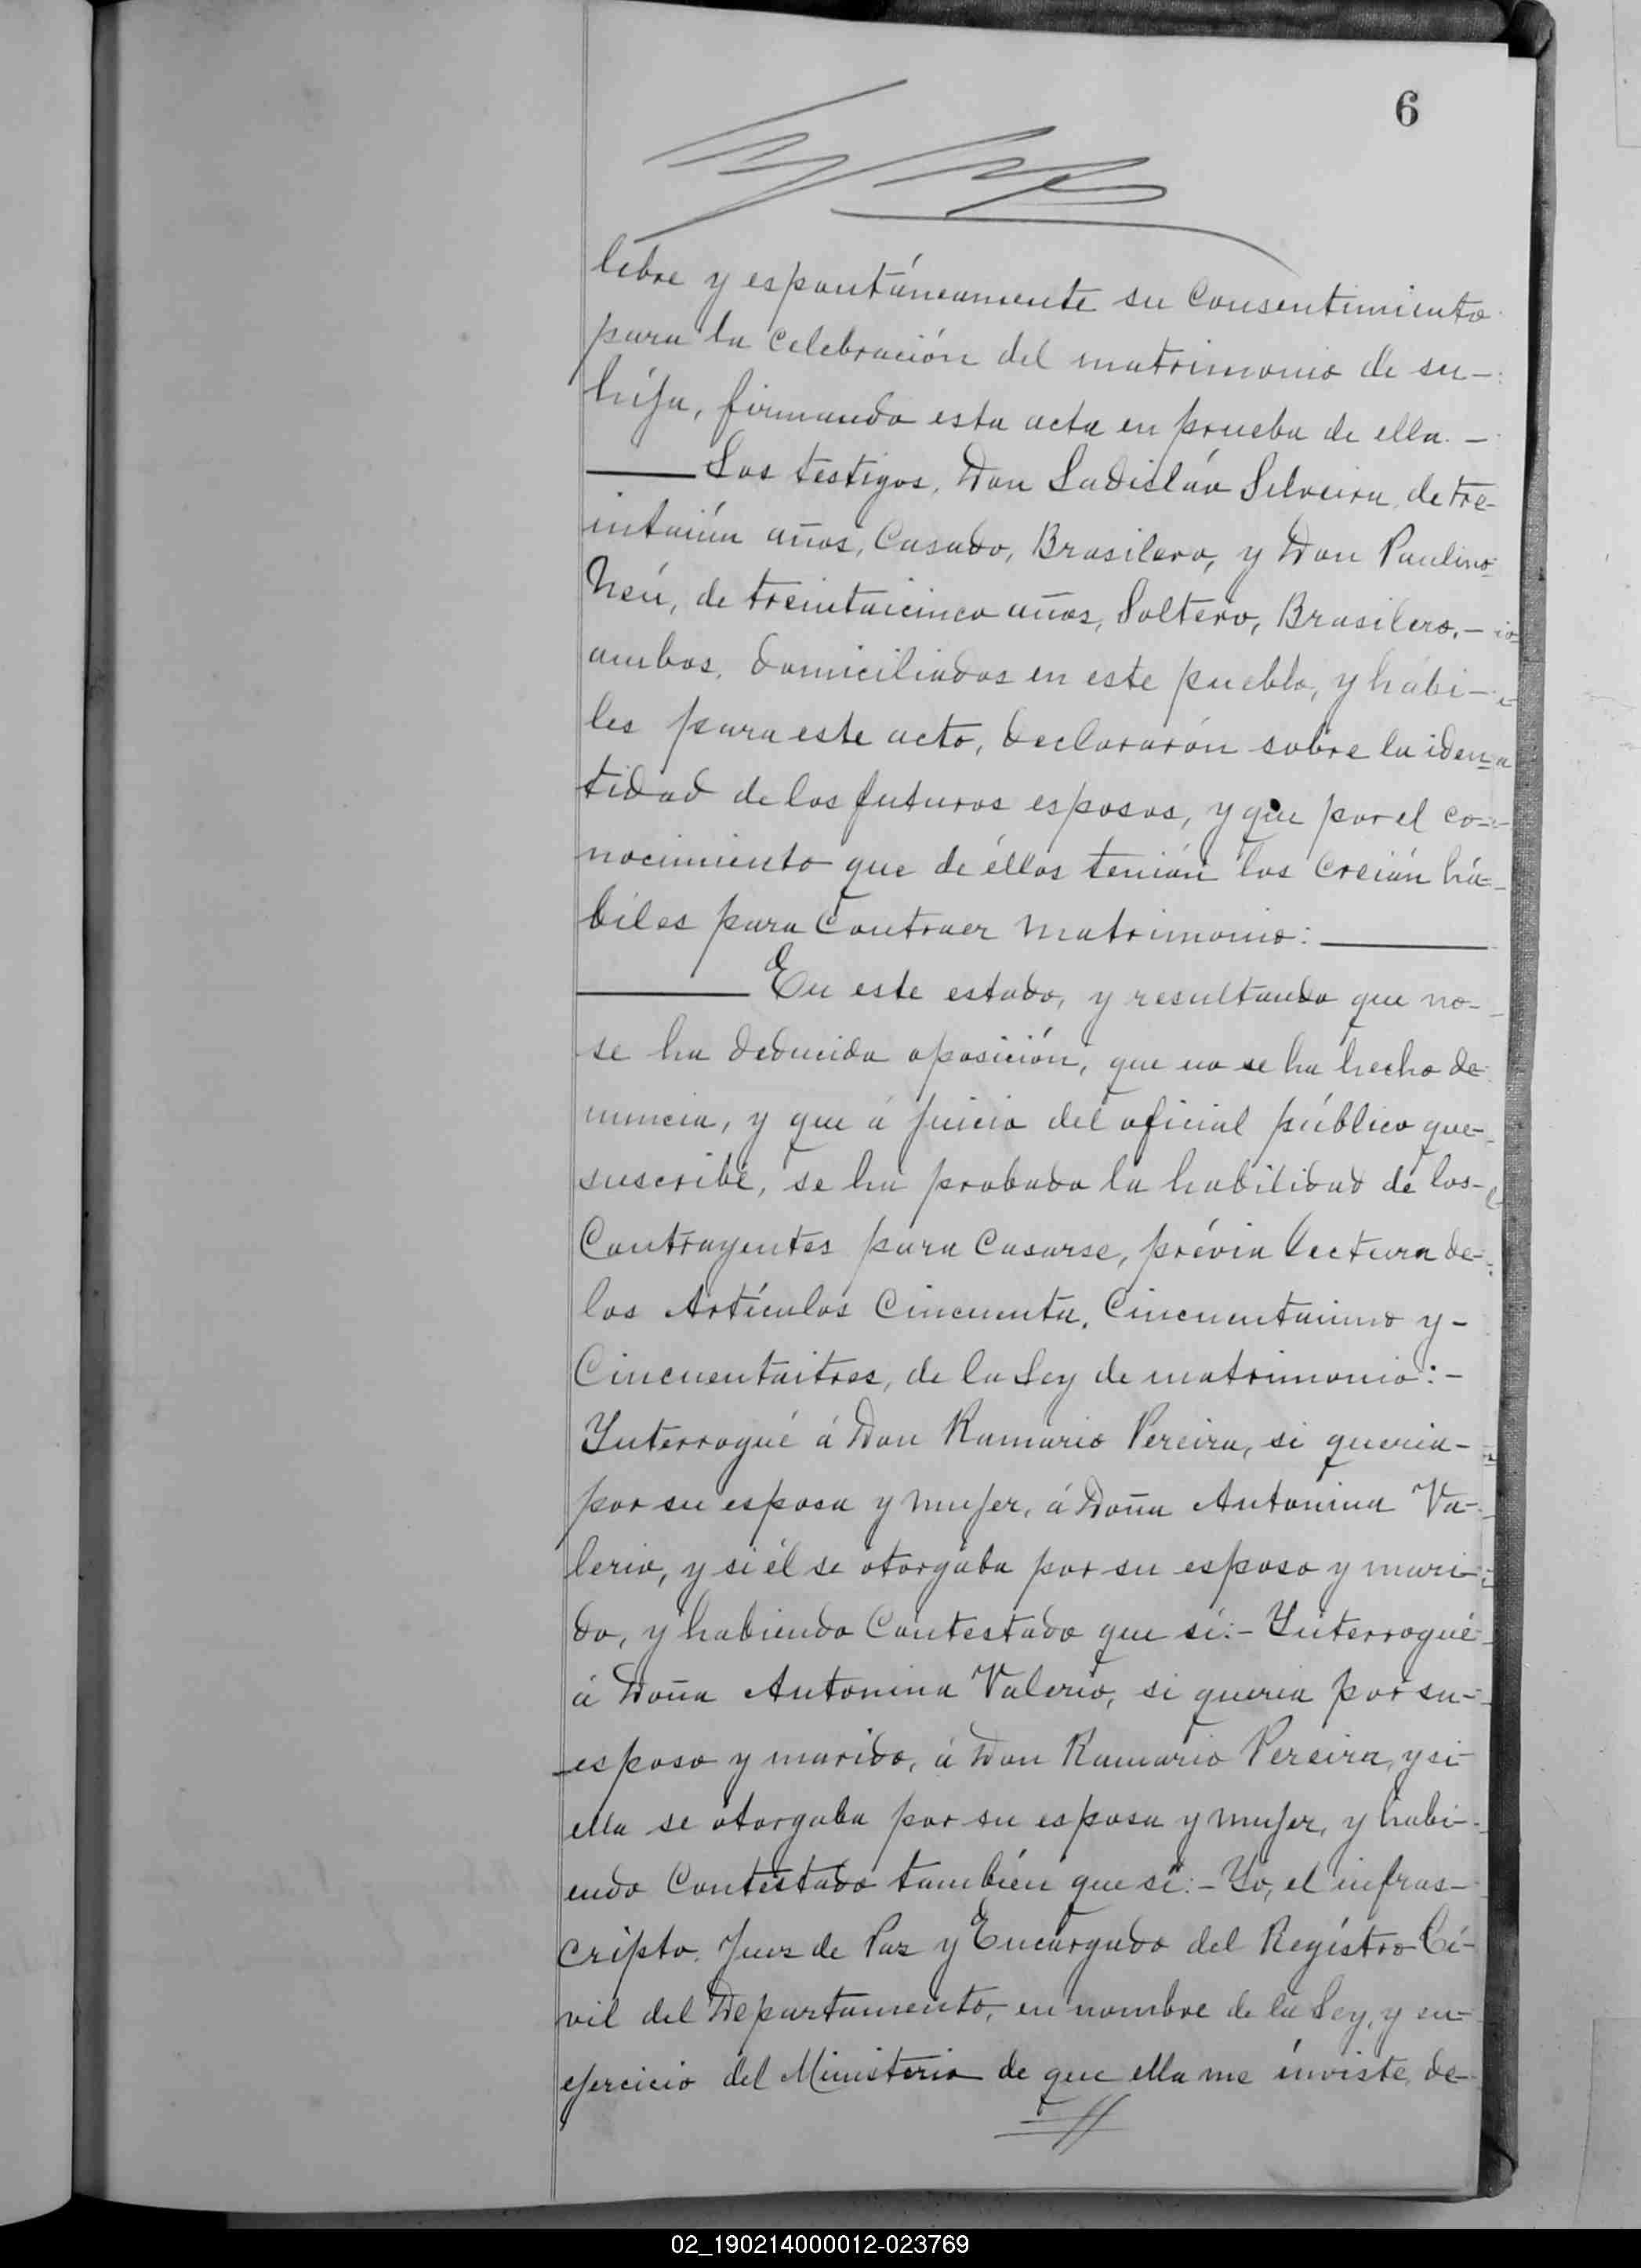 6
libre y espontáneamente su Consentimiento
para la Celebración del matrimonio de su-
hija, firmando esta acta en prueba de ella. -
Los testigos, Don Ladisláo Silveira, de tre-
intaiún años, Casado, Brasilero, y Don Paulino
Neú, de treintaicinco años, Soltero, Brasilero. -
ambos, domiciliados en este pueblo, y hábi-
les para este acto, declararón sobre la iden-
tidad de los futuros esposos, y que por el co-
nocimiento que de éllos tenián los Creián há-
biles para Contraer matrimonio:
En este estado, y resultando que no-
se ha deducido oposición, que no se ha hecho de
nuncia, y que á juicio del oficial público que-
suscribe, se ha probado la habilidad de los-
Contrayentes para Casarse, prévia lectura de-
los Artículos Cincuenta, Cincuentaiuno y-
Cincuentaitres, de la Ley de matrimonio: -
Ynterrogué á Don Ramario Pereira, si queria-
por su esposa y mujer, á Doña Antonina Va-
lerio, y si él se otorgaba por su esposo y mari-
do, y habiendo Contestado que sí: - Ynterrogué
á Doña Antonina Valerio, si queria por su-
esposo y marido, á Don Ramario Pereira, y si
ella se otorgaba por su esposa y mujer, y habi-
endo Contestado también que sí: - Yo, el infras-
cripto. Juez de Paz y Encargado del Registro Ci-
vil del Departamento, en nombre de la Ley, y en-
ejercicio del Ministerio de que ella me inviste, de-
02_190214000012-023769